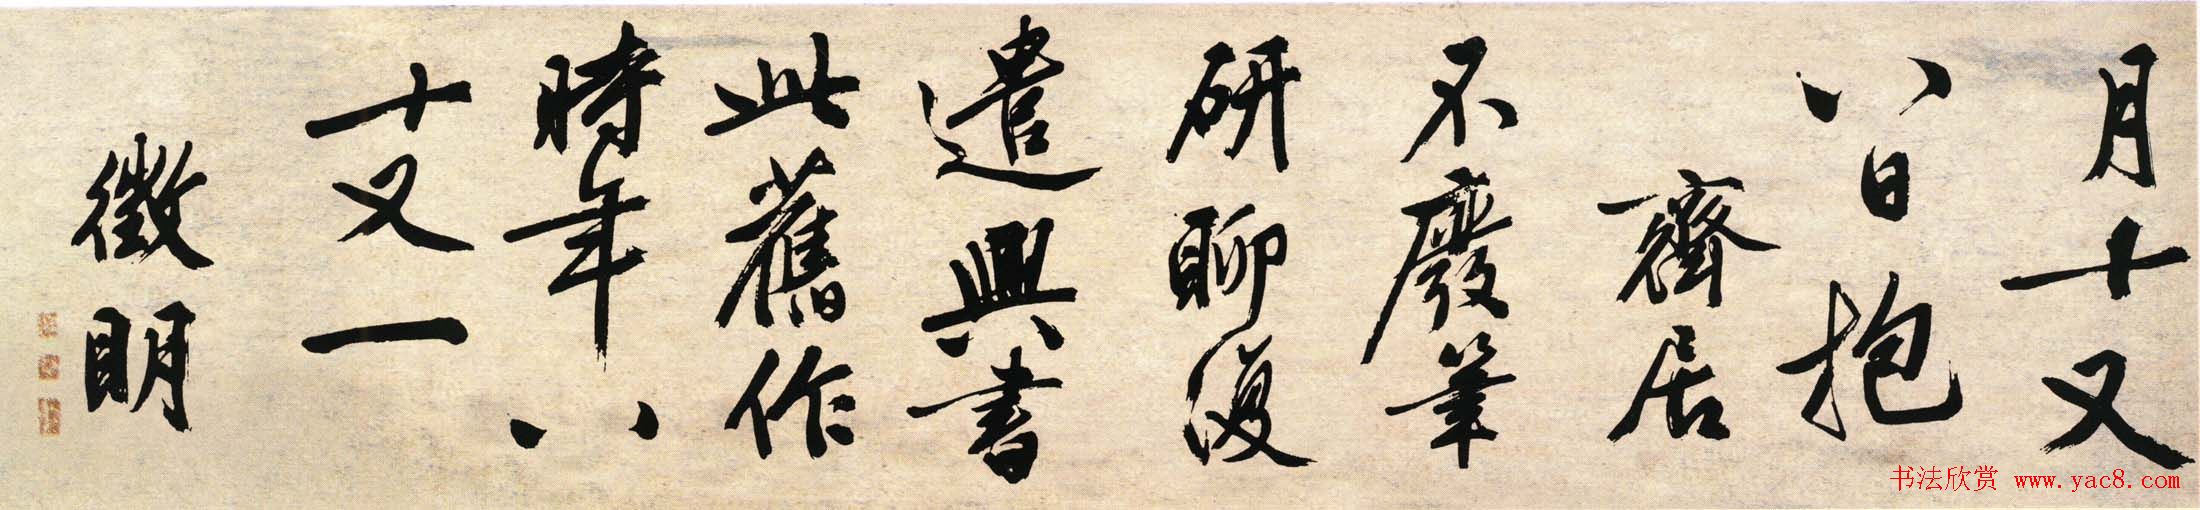 月十又
八日抱
齋居
不廢筆
研聊復
遣興書
此舊作
時年八
十又一
徵明
书法欣赏 www.yac8.com